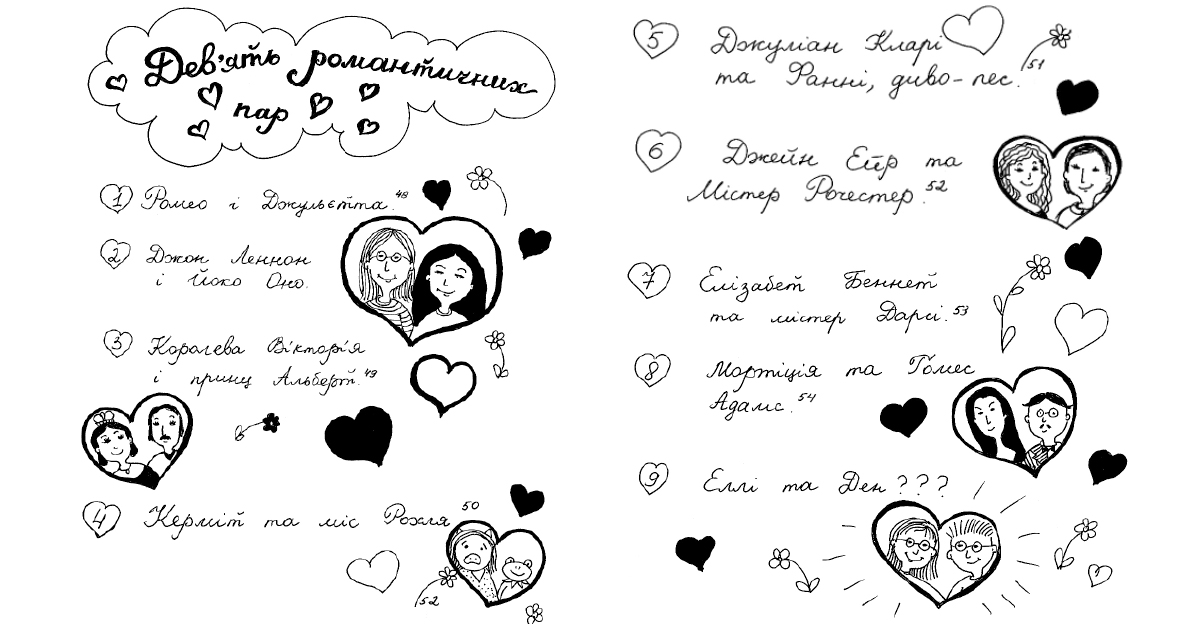 Дев'ять романтичних
пар
1 Ромео і Джульєтта.48
2 Джон Леннон
і Йоко Оно.
3 Королева Вікторія
і принц Альберт.49
4 Керміт та міс Рохля50
52
5 Джуліан Кларі
та Фанні, диво-пес.51
6 Джейн Ейр та
Містер Рочестер.52
7 Елізабет Беннет
та містер Дарсі.53
8 Мортіція та Ґомес
Адамс.54
9 Еллі та Ден???